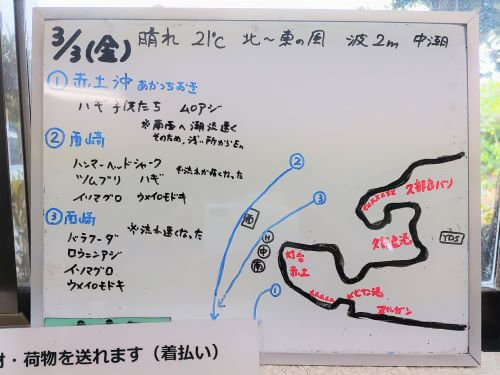 3/3(金) 晴れ 21℃ 北～東の風 波2m 中潮
① 赤土沖 あかつちおき
ハギ子供たち ムロアジ
※南西へ潮流速く
そのため、浅い所からEn
② 南崎
ハンマーヘッドシャーク
※流れが速くなった
ツムブリ ハギ
イソマグロ ウメイロモドキ
③ 南崎
バラフーダ
※流れ速くなった
ロウニンアジ
イソマグロ
ウメイロモドキ
②
③
南
H
中
南
①
灯台
赤土
久部良バリ
久部良港
YDS
ダンヌ
・荷物を送れます（着払い）